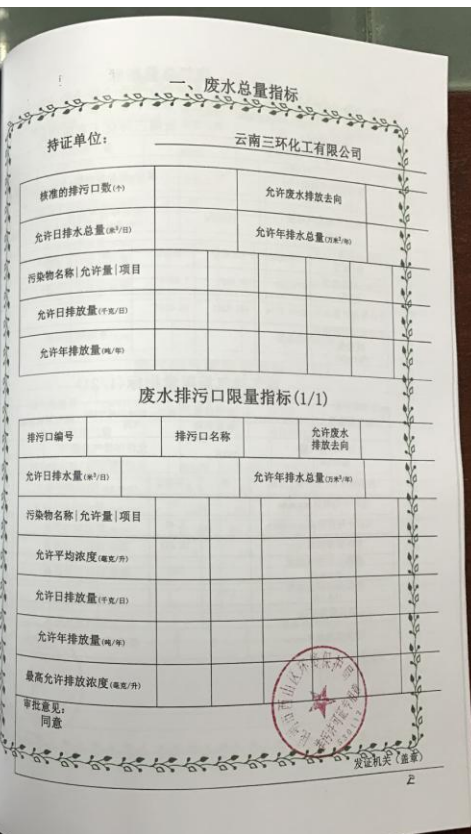 一、废水总量指标
持证单位： 云南三环化工有限公司
核准的排污口数(个) 允许废水排放去向
允许日排水总量(米³/日) 允许年排水总量(万米³/年)
污染物名称|允许量|项目
允许日排放量(千克/日)
允许年排放量(吨/年)
废水排污口限量指标(1/1)
排污口编号 排污口名称 允许废水排放去向
允许日排水量(米³/日) 允许年排水总量(万米³/年)
污染物名称|允许量|项目
允许平均浓度(毫克/升)
允许日排放量(千克/日)
允许年排放量(吨/年)
最高允许排放浓度(毫克/升)
审批意见：
同意
发证机关（盖章）
2